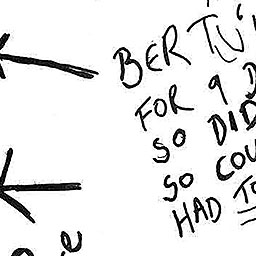 BERTU'
FOR 9 D
SO DID
SO COU
HAD TO